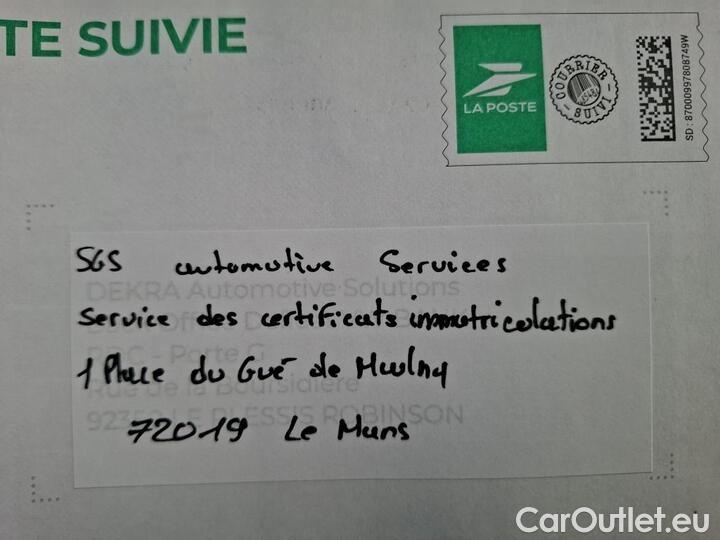 TE SUIVIE
LA POSTE
COURRIER SUIVI
SD : 87000997808749W
SGS automotive Services
DEKRA Automotive Solutions
Service des certificats immatriculations
PBC - Porte G
1 Place du Gué de Maulny
Rue de la Boursidière
92350 LE PLESSIS ROBINSON
72019 Le Mans
CarOutlet.eu